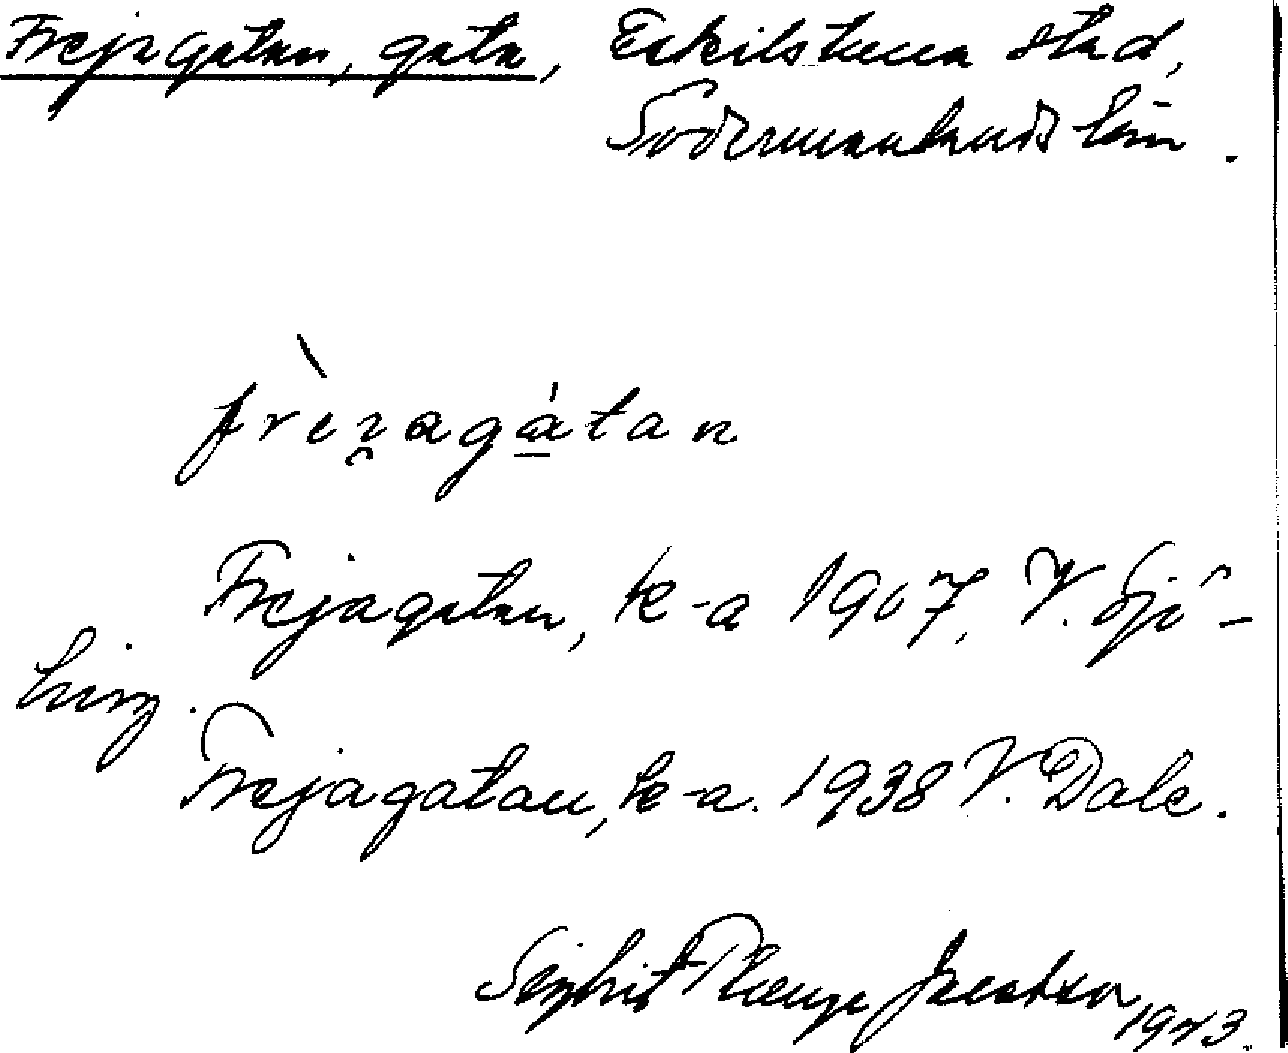 Frejagatan, gata, Eskilstuna stad,
Södermanlands län.
frèi̯agátan
Frejagatan, k-a 1907, V. Sjö-
ling.
Frejagatan, k-a. 1938 V. Dale.
Sigbrit Plænge Jacobson 1943.